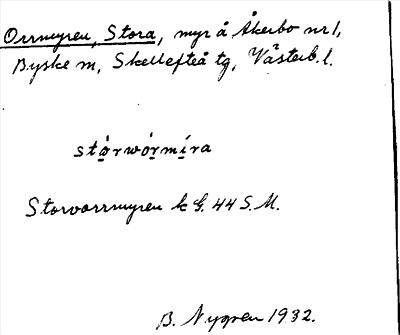 Orrmyren, Stora, myr å Åkerbo nr 1,
Byske m, Skellefteå tg, Västerb. l.
stọ́rwọ́rmị́ra
Storvorrmyren k G. 44 S. M.
B. Nygren 1932.